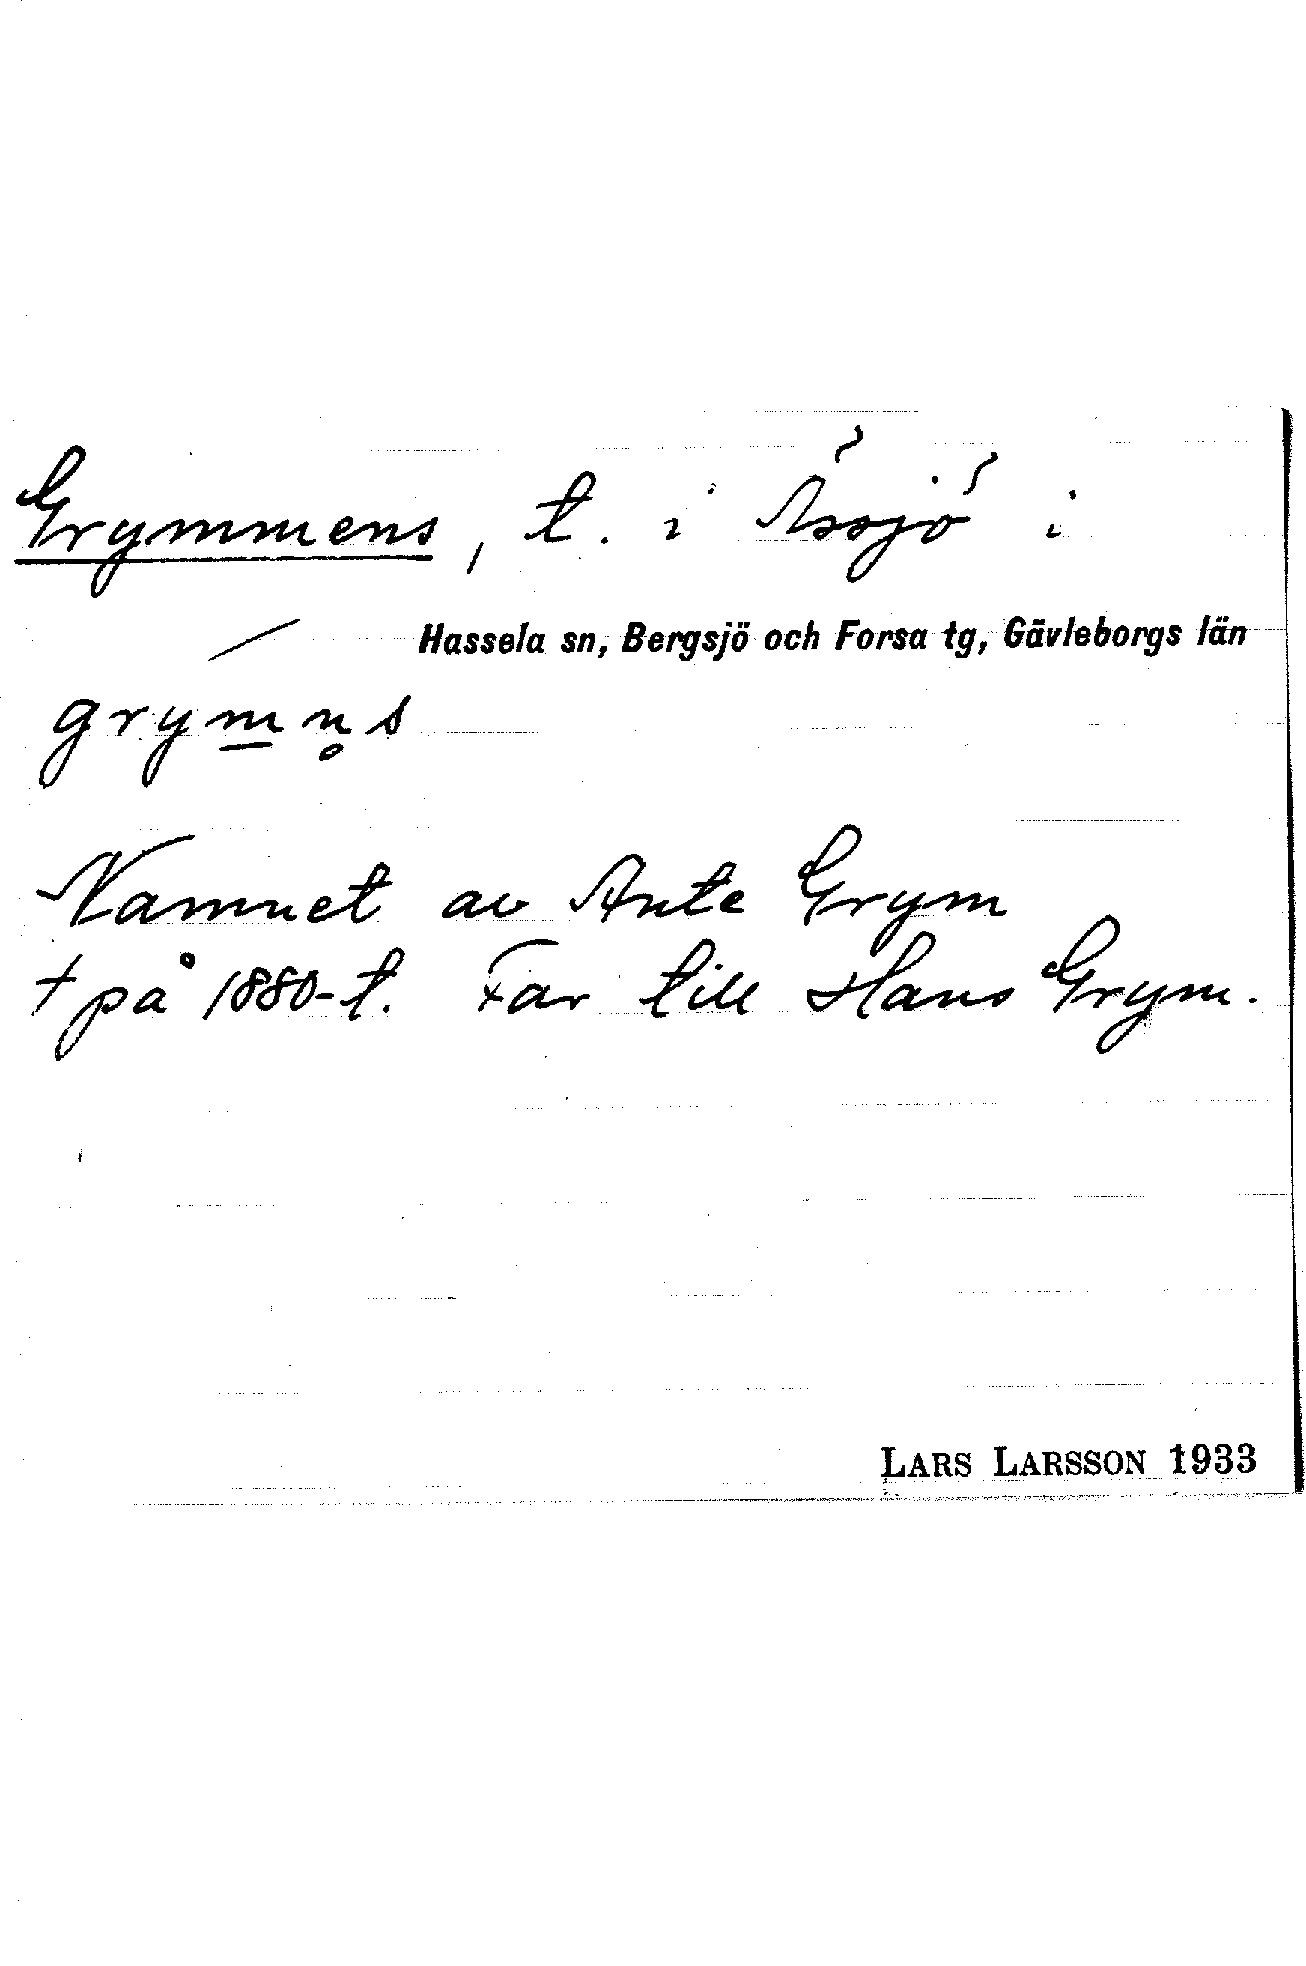 Grymmens, t. i Ässjö i
Hassela sn, Bergsjö och Forsa tg, Gävleborgs län
grym̲n̥s
Namnet av Ante Grym
† på 1880-t. Far till Hans Grym.
LARS LARSSON 1933